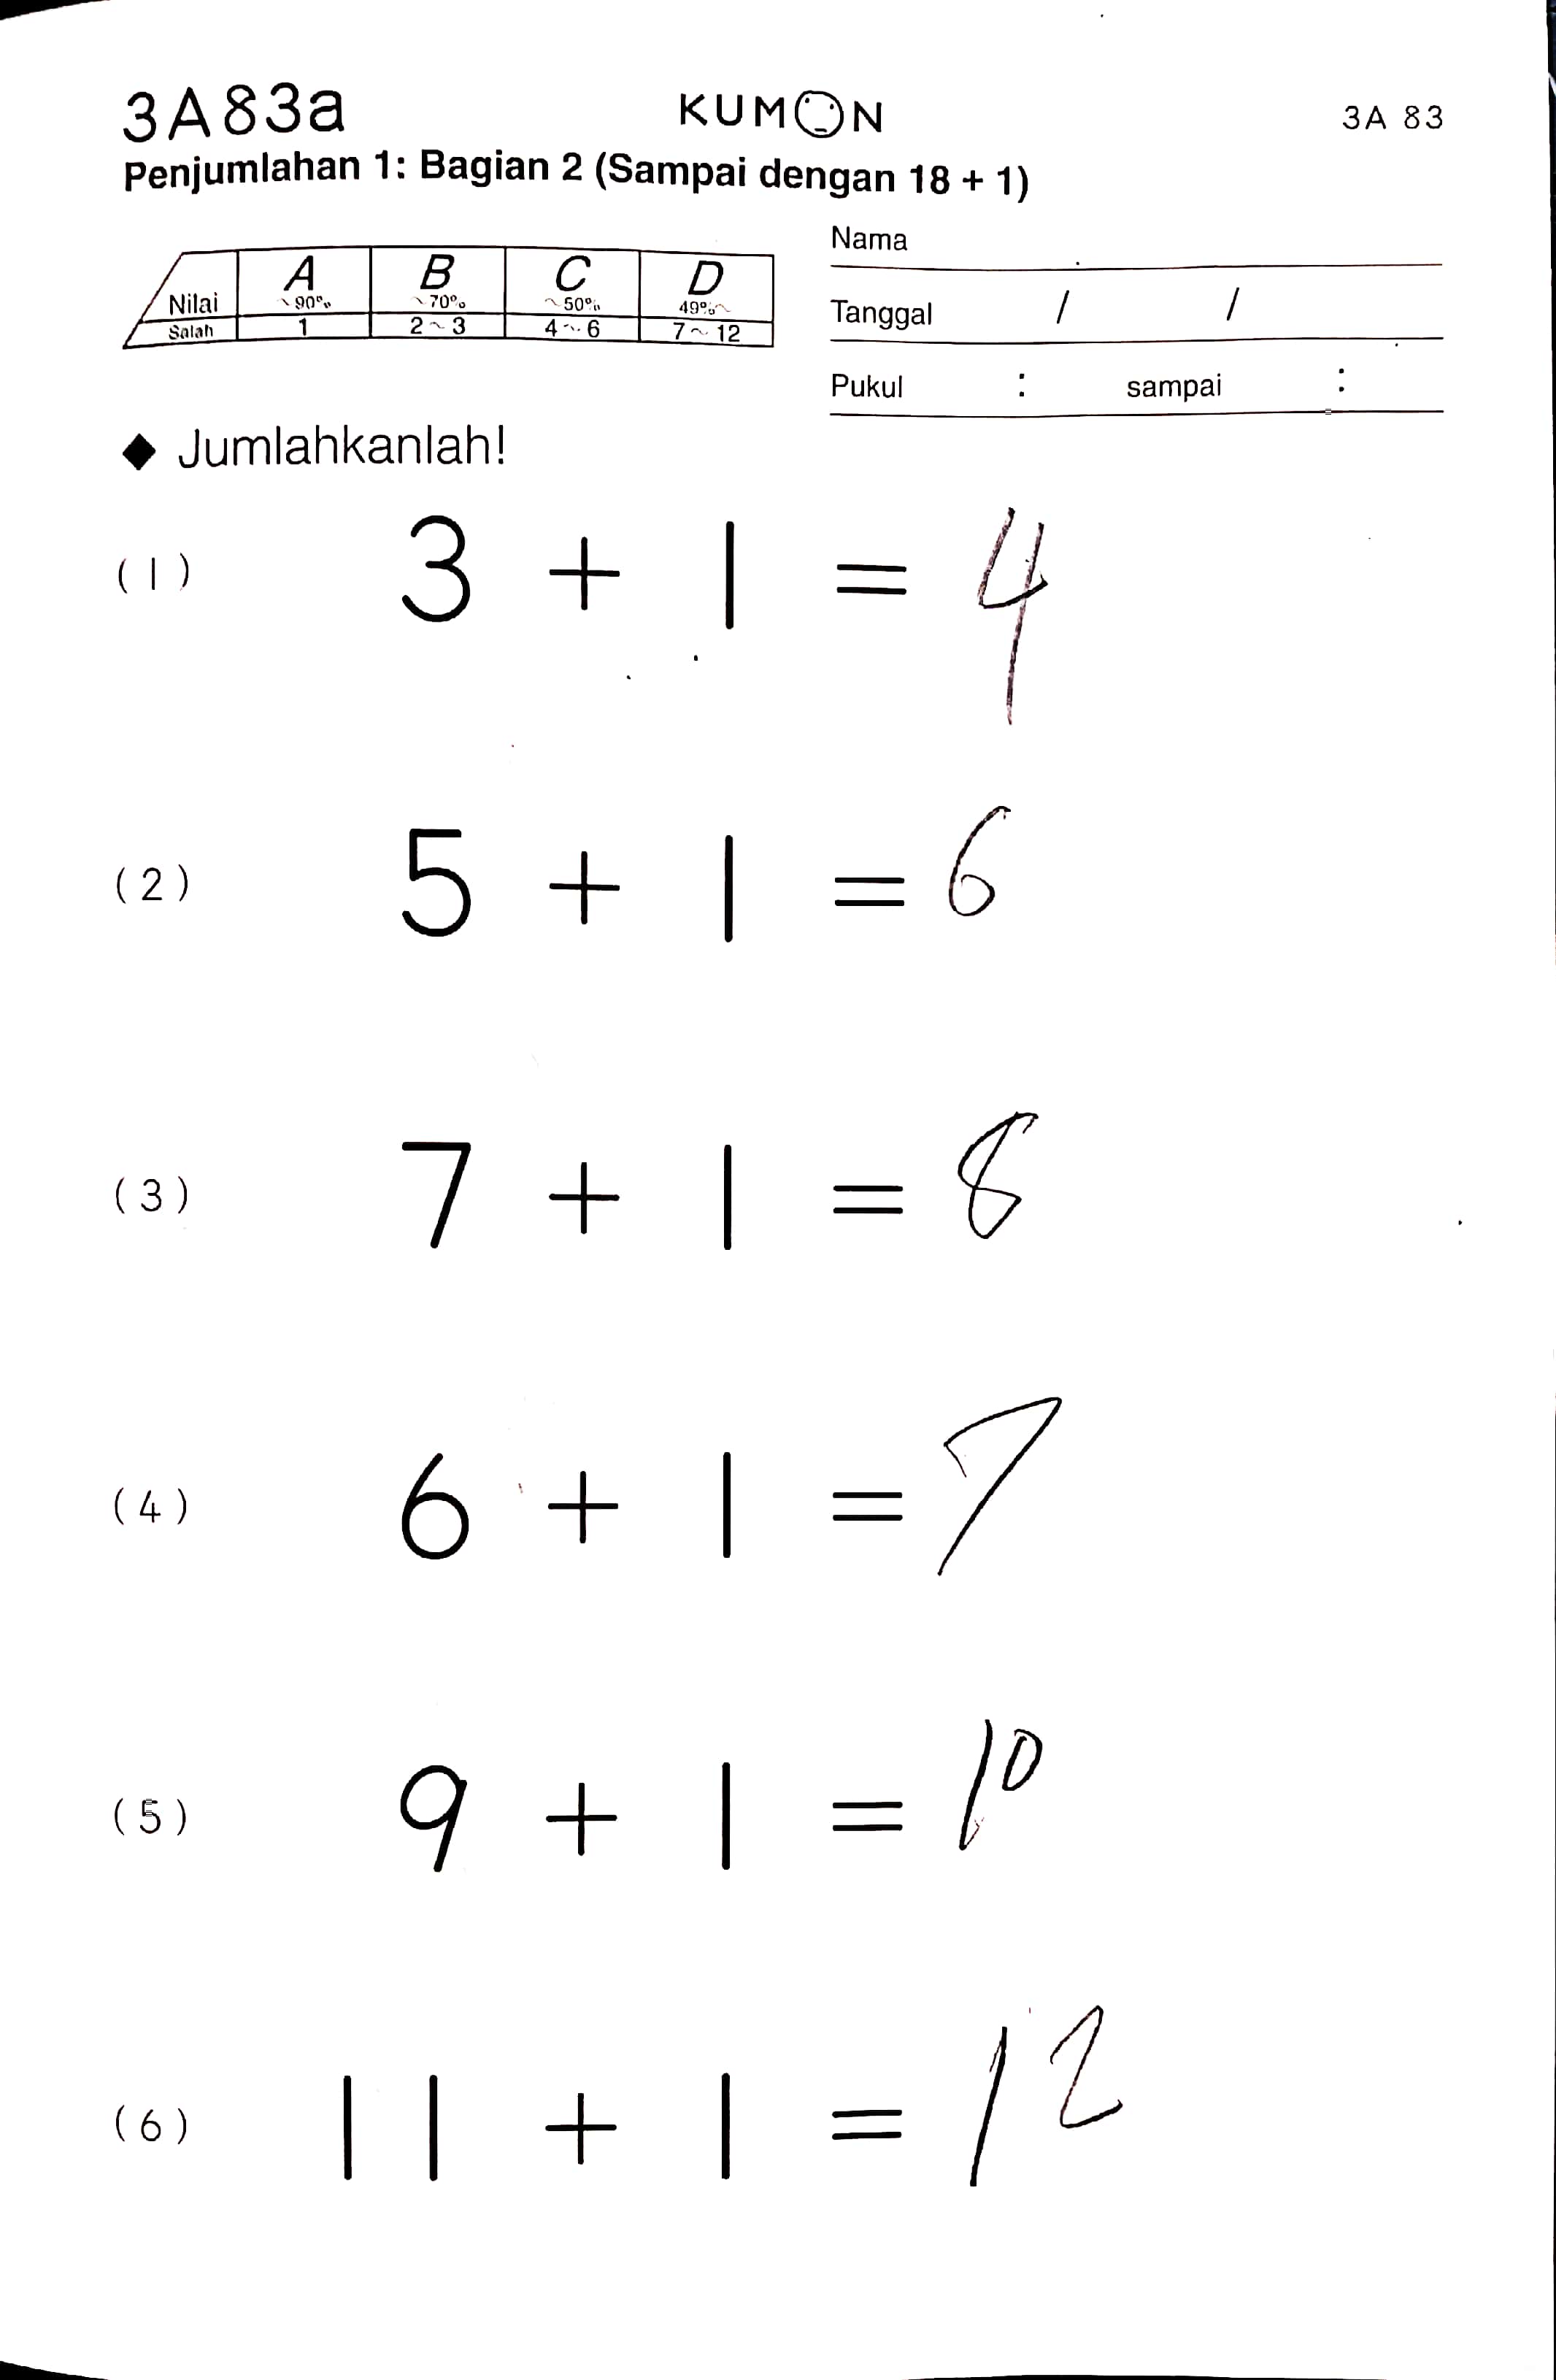 3A83a KUMON 3A 83
Penjumlahan 1: Bagian 2 (Sampai dengan 18 + 1)
Nilai A ~90% B ~70% C ~50% D 49%~
Salah 1 2~3 4~6 7~12
Nama
Tanggal / /
Pukul : sampai :
◆ Jumlahkanlah!
(1) 3 + 1 = 4
(2) 5 + 1 = 6
(3) 7 + 1 = 8
(4) 6 + 1 = 7
(5) 9 + 1 = 10
(6) 11 + 1 = 12